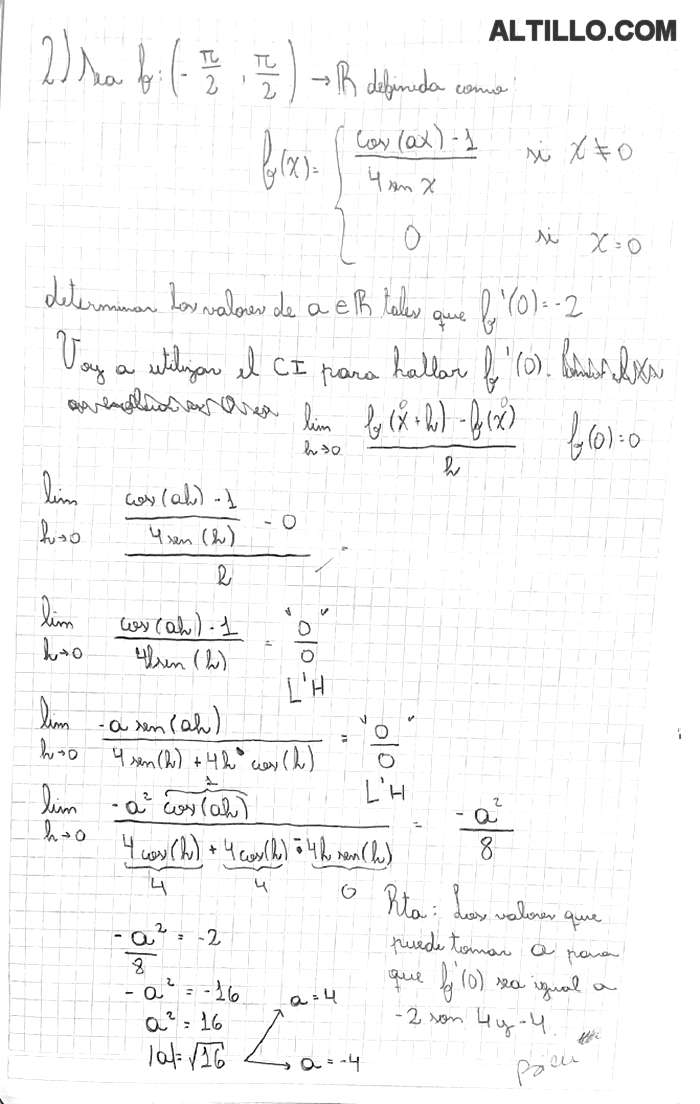 ALTILLO.COM
2) Sea f: (-π/2, π/2) → ℝ definida como:
f(x) = { (cos(ax) - 1)/(4 sen x) si x ≠ 0
0 si x = 0
determinar los valores de a ∈ ℝ tales que f'(0) = -2
Voy a utilizar el CI para hallar f'(0).
lim h→0 (f(x⁰ + h) - f(x⁰))/h f(0) = 0
lim h→0 ((cos(ah) - 1)/(4 sen(h)) - 0)/h =
lim h→0 (cos(ah) - 1)/(4h sen(h)) = "0/0" L'H
lim h→0 (-a sen(ah))/(4 sen(h) + 4h · cos(h)) = "0/0" L'H
lim h→0 (-a² cos(ah))/(4 cos(h) + 4 cos(h) - 4h sen(h)) = -a²/8
1
4 4 0
-a²/8 = -2
-a² = -16
a² = 16
|a| = √16
a = 4
a = -4
Rta: Los valores que
puede tomar a para
que f'(0) sea igual a
-2 son 4 y -4.